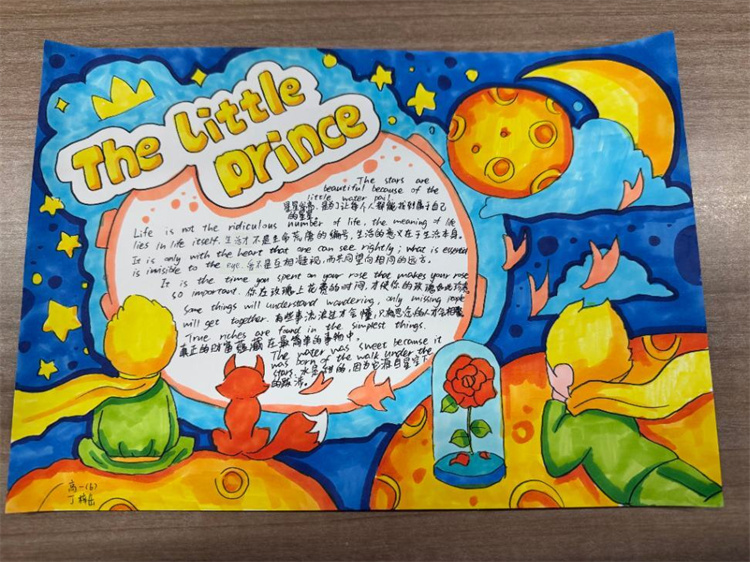 The Little
prince
The stars are
beautiful because of the
little water pail
星星发亮，是为了让每个人都能找到属于自己
的星星。
Life is not the ridiculous number of life, the meaning of life
lies in life itself. 生活才不是生命荒唐的编号，生活的意义在于生活本身。
It is only with the heart that are can see rightly; what is essential
is invisible to the eye. 爱不是互相凝视，而是同望向相同的远方。
It is the time you spent on your rose that makes your rose
so important. 你在玫瑰上花费的时间，才使你的玫瑰如此珍贵
Some things will understand wandering, only missing people
will get together. 有些事流浪过才会懂，只有思念的人才会相聚
True riches are found in the simplest things.
真正的财富蕴藏在最简单的事物中。
The water was sweet because it
was born of the walk under the
stars. 水是甜的，因为它源自星空下
的跋涉。
高一(6)
丁